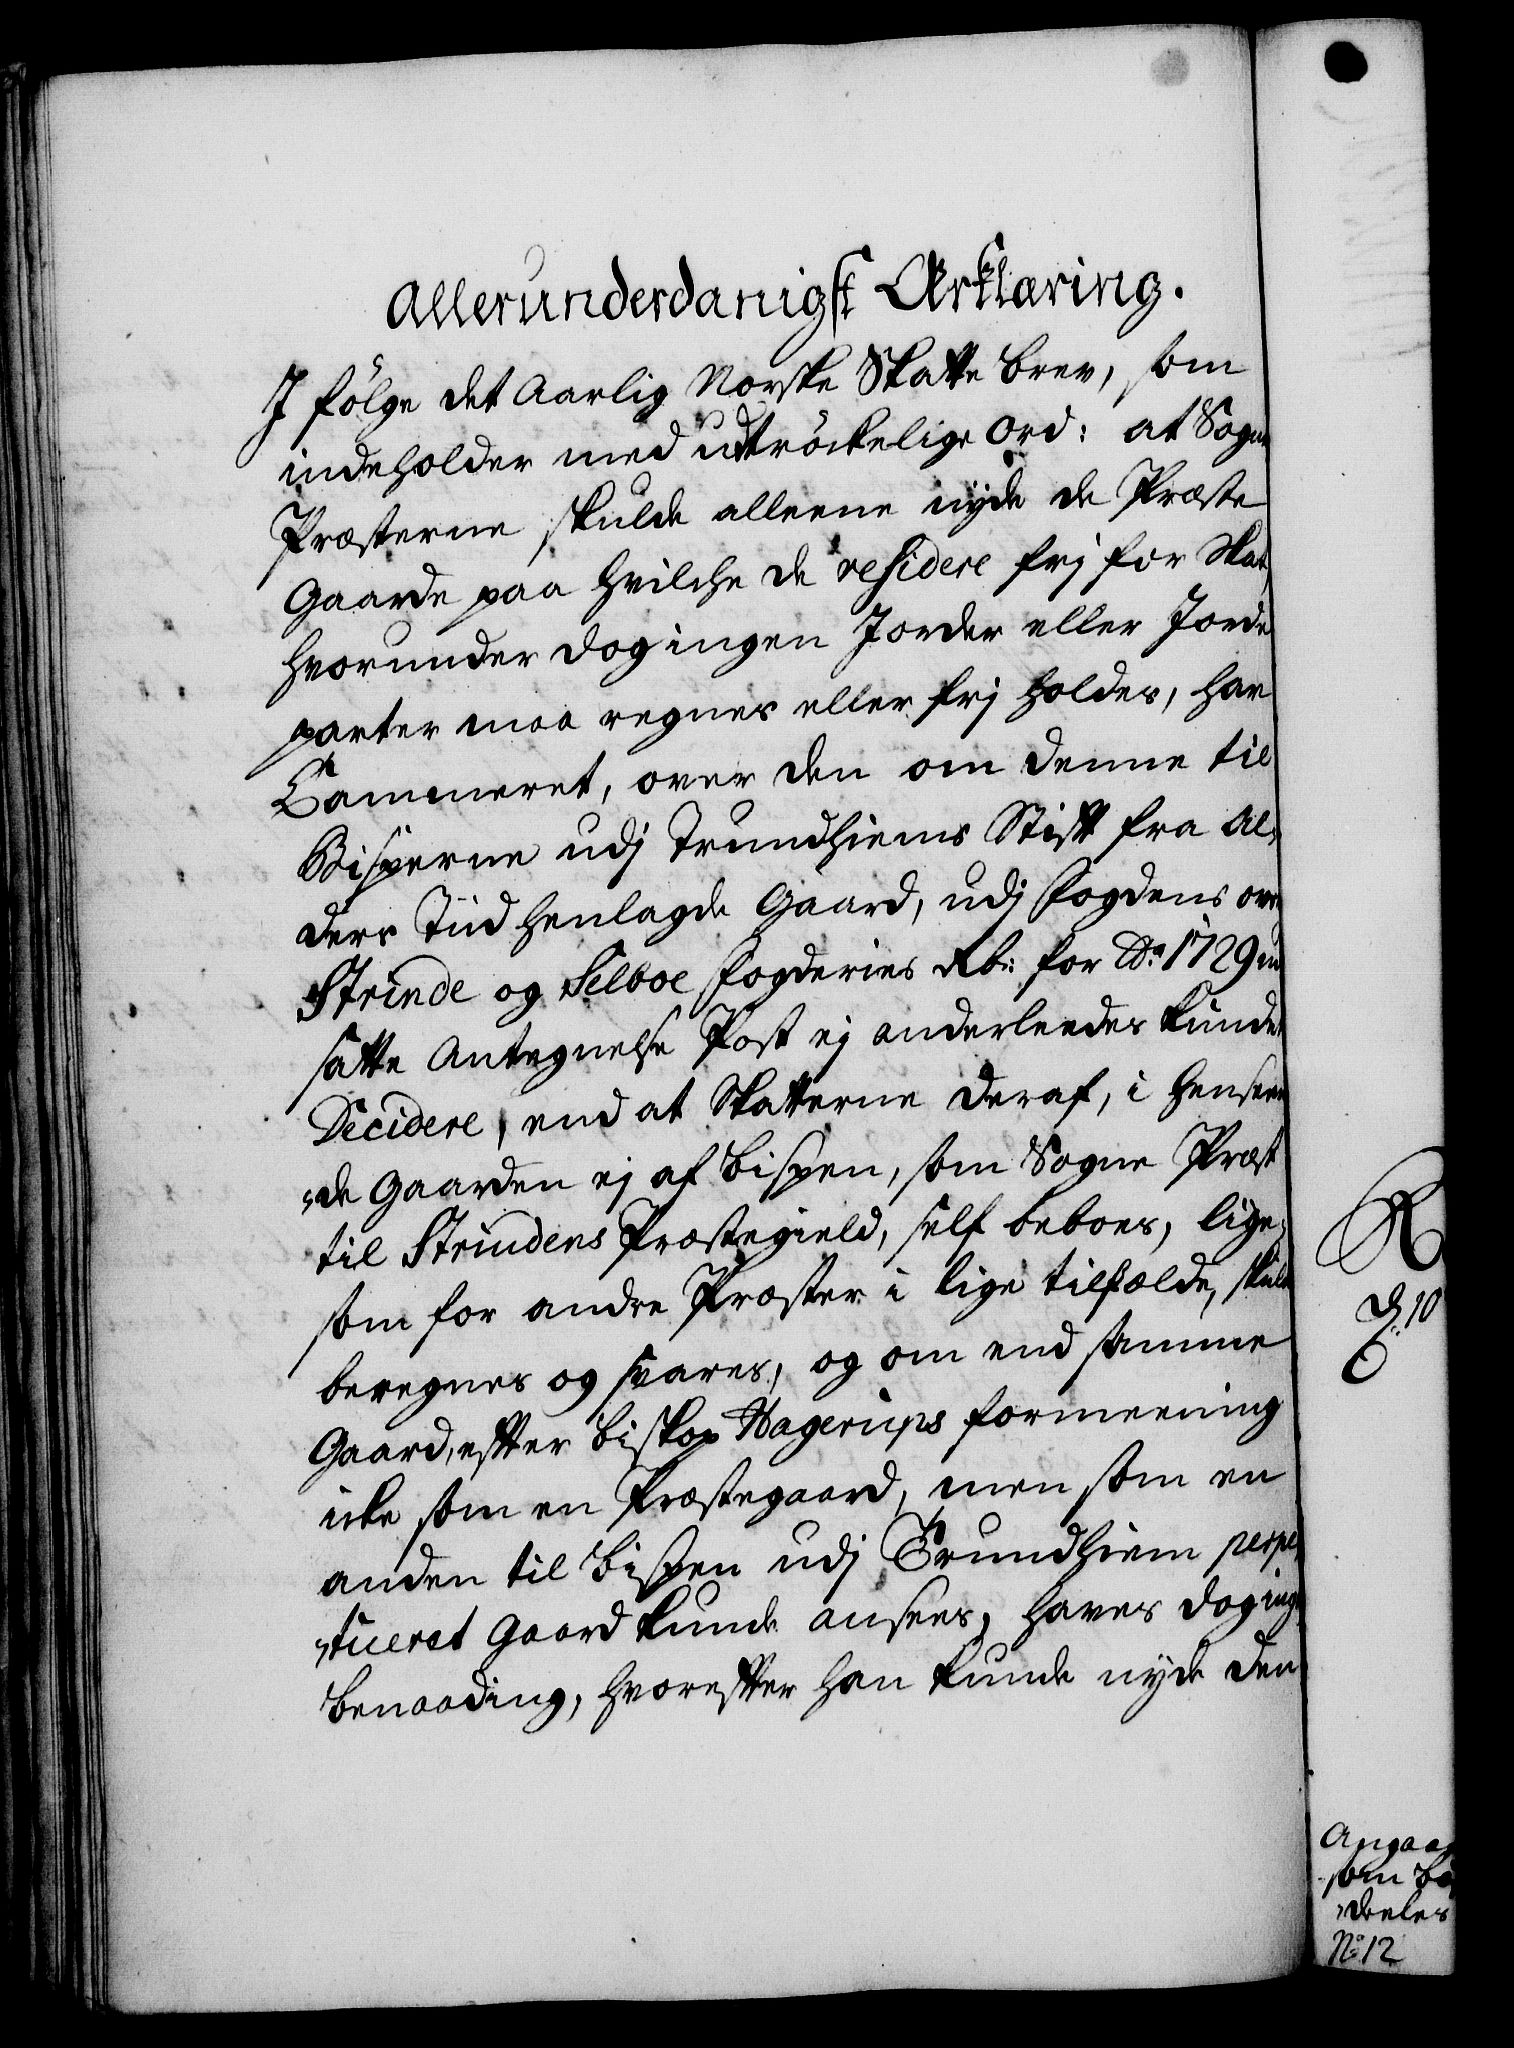 Allerunderdanigst Erklæring.
J fölge det Aarlig Norske Skatte brev, som
indeholder med udtröckelige Ord: at Sogne
Præsterne skulde alleene nyde de Præste
Gaarde paa hvilche de residere frj for Skat,
hvorunder dog ingen Jorder eller Jorde
parter maa regnes eller frj holdes, har
Cammeret, over den om denne til
Bisperne udj Trundhiems Stift fra Al„
ders Tiid henlagde Gaard, udj Fogdens over
Strinde og Selboe Fogderies Rb: for Ao: 1729 ud
satte Antegnelse Post ej anderleedes kundet
Decidere, end at Skatterne deraf, i Henseen
„de Gaarden ej af Bispen, som Sogne Præst
til Strindens Præstegield, self beboes, lige„
som for andre Præster i lige tilfælde, skulde
beregnes og svares, og om end samme
Gaard, efter Biskop Hagerups formeening
icke som en Præstegaard, men som en
anden til Bispen udj Trundhiem perpe„
„tueret Gaard kunde ansees, haves dog ingen
benaading, hvorefter han kunde nyde den
R
10
Angaa
som
deeles
No: 12